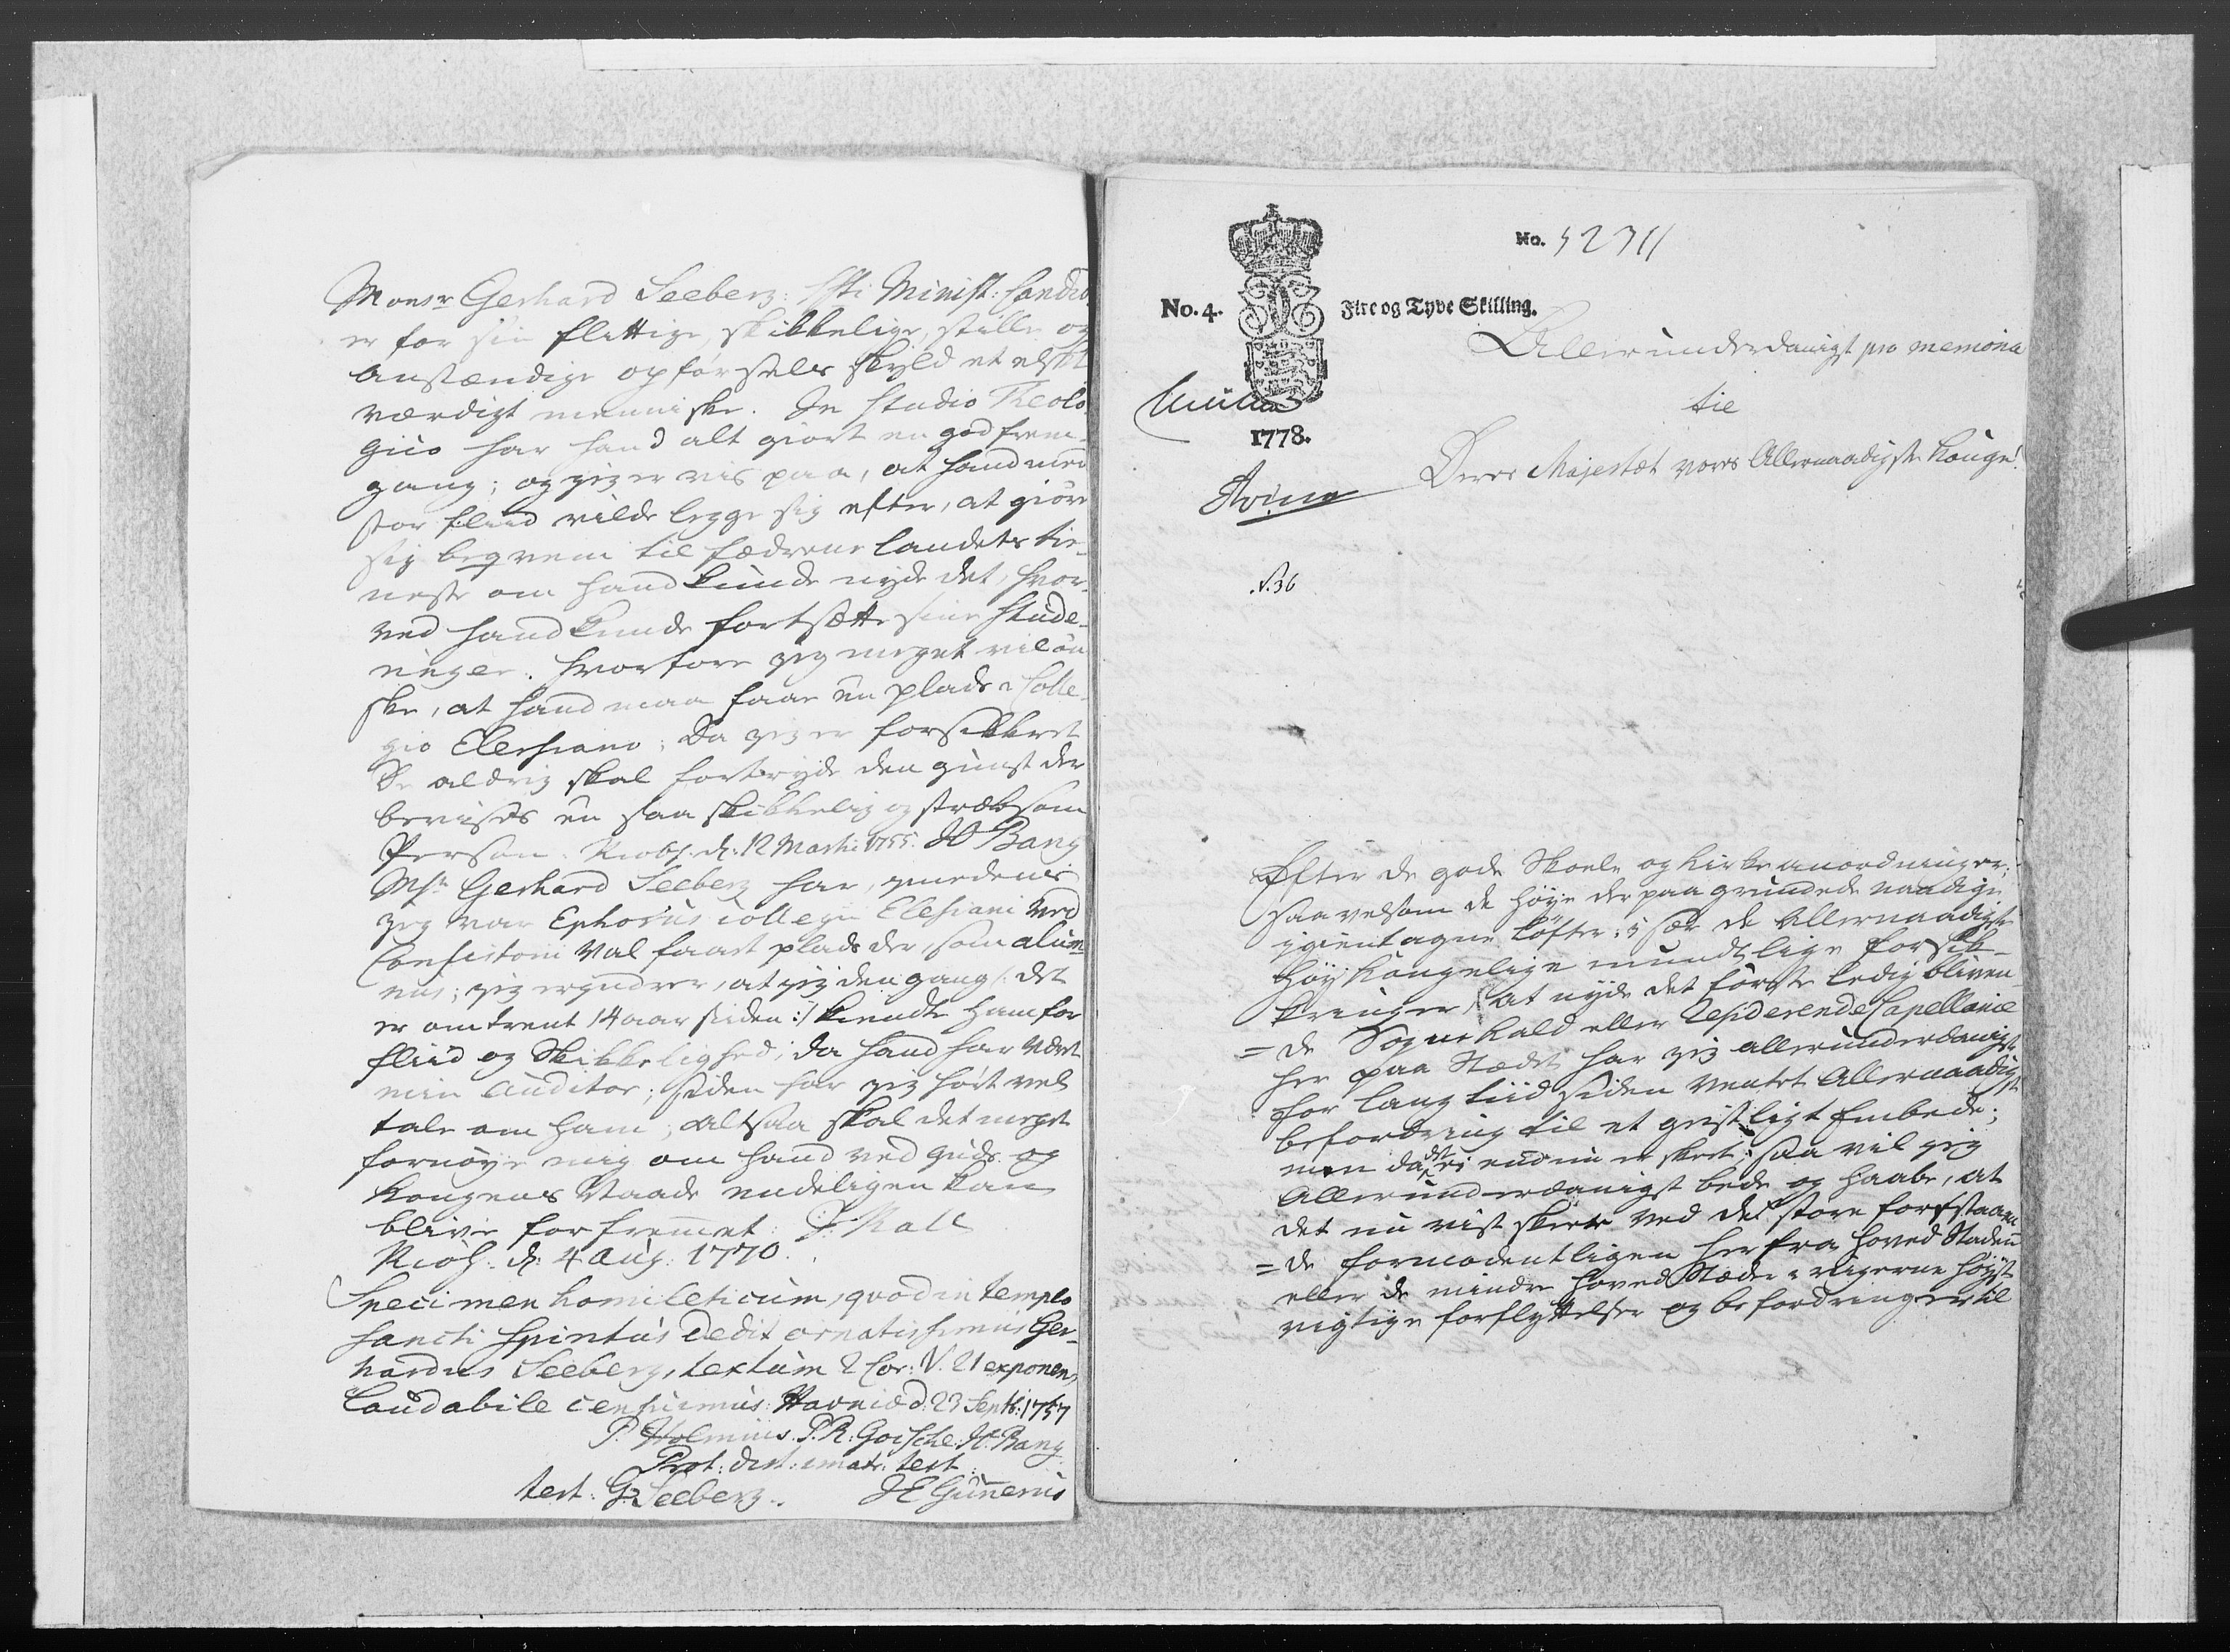 Monsr Gerhard Seeberg: Ssti Minist: Candid
er for sin flittige, skikkelige, stille og
anstændige opførsels skyld et elsk
værdigt menniske. In studio Theolo
gico har hand alt giort en god frem-
gang; og jeg er vis paa, at hand med
stor fliid vilde legge sig efter, at giøre
sig beqvem til fædrene landets tie-
neste om hand kunde nyde det, hvor-
ved hand kunde fortsætte sine stude-
ringer. hvorfore jeg meget vil øn
ske, at hand maa faae en plads i Colle-
gio Elersiano; da jeg er forsikkret
De aldrig skal fortryde den gunst der
bevises en saa skikkelig og stræbsom
Person. Kiøbh. d: 12 Martii 1755. Bang
Msr Gerhard Seeberg har, imedens
jeg var Ephorus collegii Elersiani ved
Consistorii val faaet plads der, som alum-
nus; jeg erindrer, at jeg den gang /: det
er omtrent 14 aar siden :/ kiendte ham for
fliid og Skikkelighed; da hand har været
min auditor; siden har jeg hørt vel
tale om ham; altsaa skal det meget
fornøye mig om hand ved Guds og
Kongens Naade endeligen kan
blive forfremmet: J: Kall
Kiøbh. d: 4 Aug: 1770.
Specimen homileticum, qvod in templo
sancti spiritus dedit ornatissimus Ger-
hardus Seeberg, textum 2 Cor: V. 21 exponens
Laudabile censuimus. Havniæ d: 23 Septb: 1757
P. Holmius. P.R: Goische. Bang
Prot: dist: ematr: test
test: G: Seeberg. Gunnerus
No. 5231
No. 4. Fire og Tyve Skilling.
1778.
Allerunderdanigst pro memoria
til
Deres Majestæt vores Allernaadigste Konge!
N. 36
Efter de gode Skoele og Kirke anordninger;
saavelsom de høye derpaa grundede naadige
igientagne løfter; især de Allernaadigste
høy Kongelige mundtlige forsik-
kringer, at nyde det første ledig bliven
= de Sognekald eller Residerende Capellanie
her paa Stædet har jeg allerunderdanigst
for lang tiid siden ventet Allernaadigst
befordring til et geistligt Embede;
men da det ei endnu er skeet; saa vil jeg
Allerunderdanigst bede og haabe, at
det nu vist skeer ved de store forestaaen
= de formodentligen herfra Hoved Staden
eller de mindre Hoved Stæder i rigerne høyst
vigtige forflyttelser og befordringer til